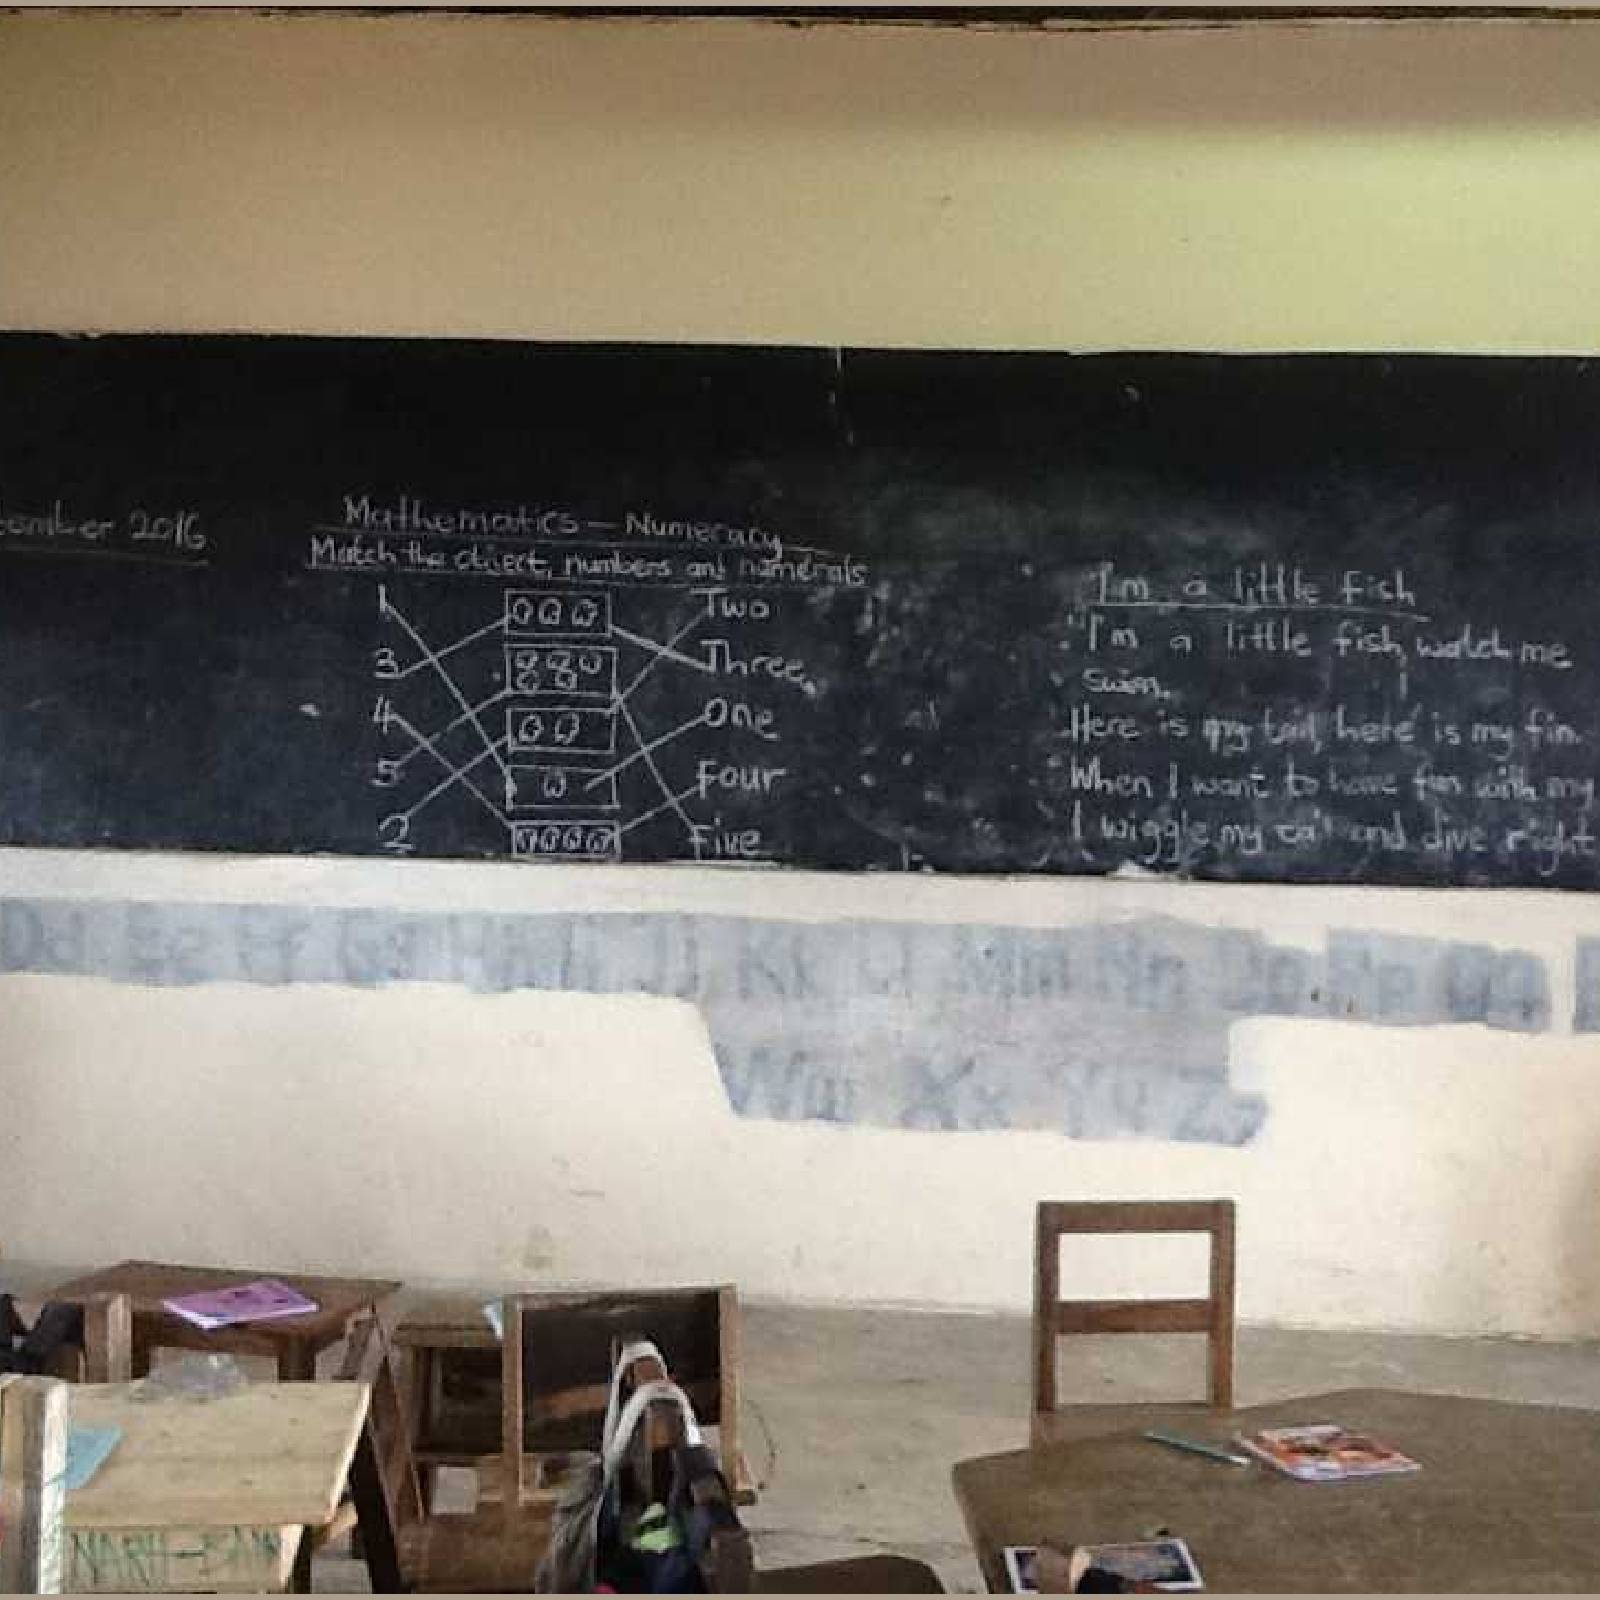 2016
Mathematics - Numeracy
Match the object, numbers and numerals
1 Two
3 Three
4 One
5 Four
2 Five
I'm a little fish
"I'm a little fish, watch me
swim.
Here is my tail, here is my fin.
When I want to have fun with my
I wiggle my and dive right
Dd Ee Ff Gg Hh Ii Jj Kk Ll Mm Nn Oo Pp Qq
Ww Xx Yy Zz